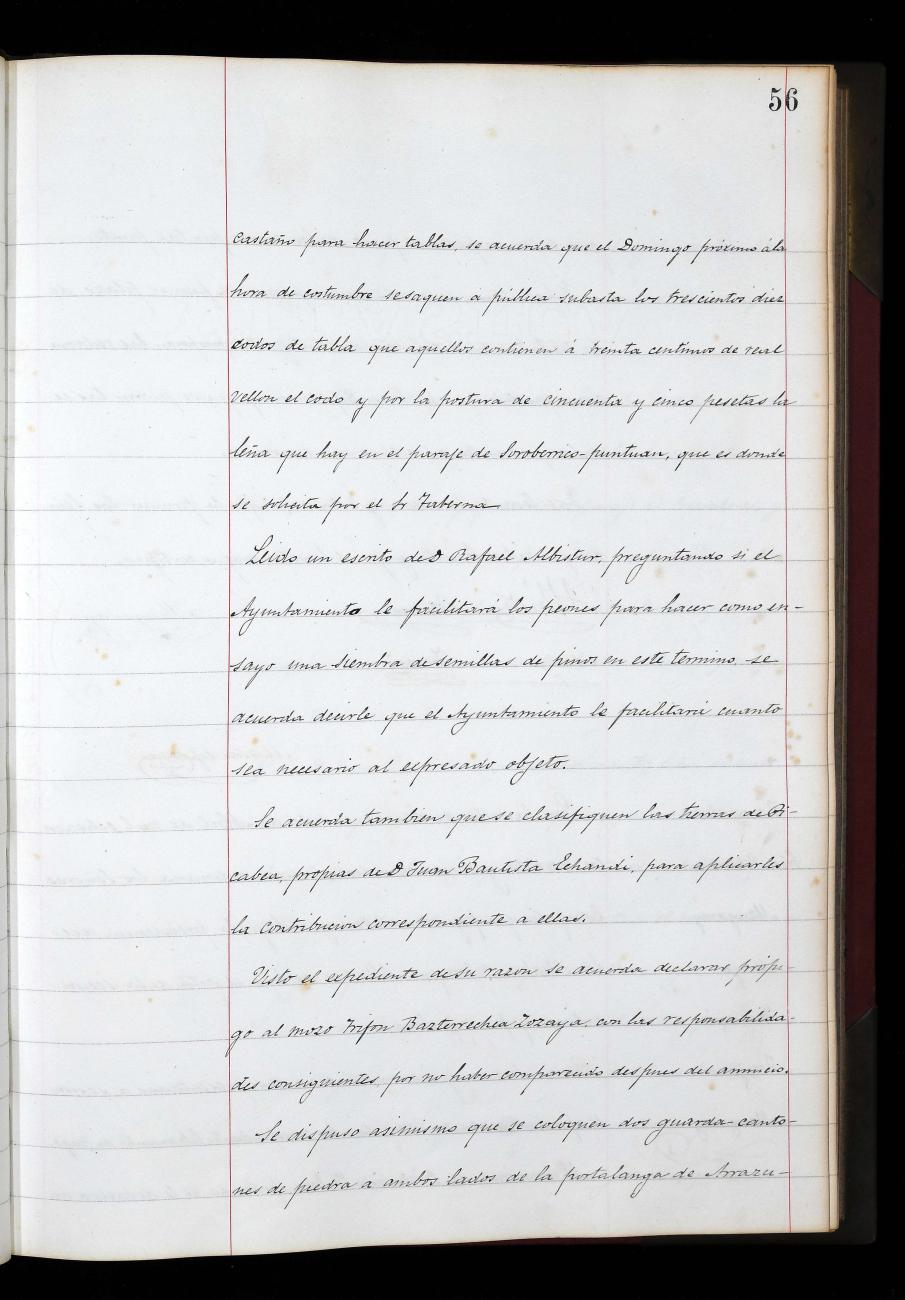 56
castaño para hacer tablas, se acuerda que el Domingo próximo á la
hora de costumbre se saquen a pública subasta los trescientos diez
codos de tabla que aquellos contienen á treinta centimos de real
vellon el codo y por la postura de cincuenta y cinco pesetas la
leña que hay en el paraje de Soroberrico-puntuan, que es donde
se solicita por el Sr Taberna
Leido un escrito de D Rafael Albistur, preguntando si el
Ayuntamiento le facilitará los peones para hacer como en-
sayo una siembra de semillas de pinos en este termino, se
acuerda decirle que el Ayuntamiento le facilitará cuanto
sea necesario al expresado objeto.
Se acuerda tambien que se clasifiquen las tierras de Bi-
cabea, propias de D Juan Bautista Echandi, para aplicarles
la contribucion correspondiente a ellas.
Visto el expediente de su razon se acuerda declarar prófu-
go al mozo Trifon Bazterrechea Zozaya, con las responsabilida-
des consiguientes, por no haber comparecido despues del anuncio.
Se dispuso asimismo que se coloquen dos guarda-canto-
nes de piedra a ambos lados de la portalanga de Arrazu-